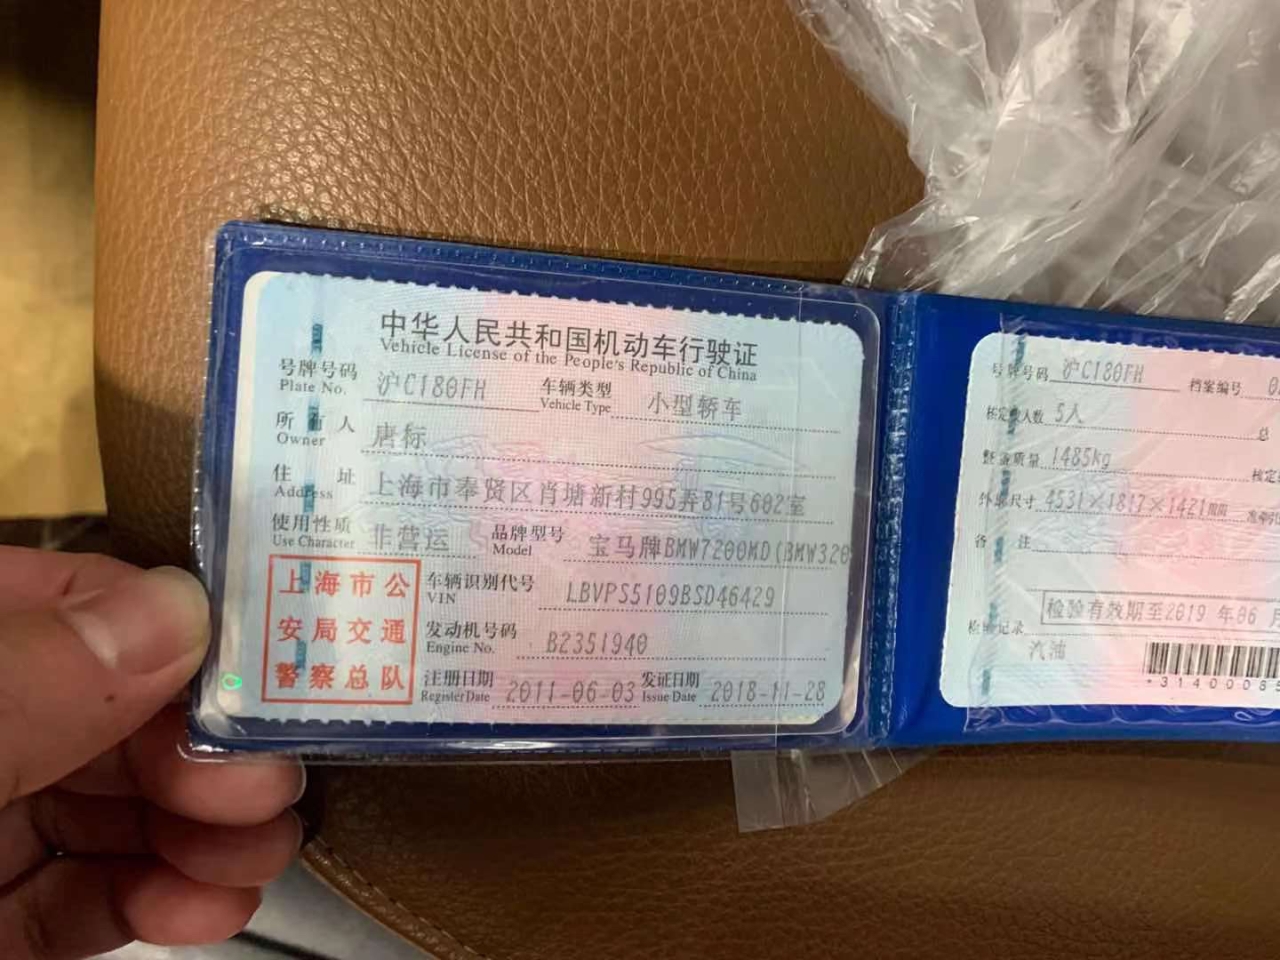 中华人民共和国机动车行驶证
Vehicle License of the People's Republic of China
号牌号码 沪C180FH 车辆类型 小型轿车
Plate No. Vehicle Type
所有人 唐标
Owner
住址 上海市奉贤区肖塘新村995弄81号602室
Address
使用性质 非营运 品牌型号 宝马牌BMW7200MD(BMW320
Use Character Model
上海市公
安局交通
警察总队
车辆识别代号 LBVPS5109BSD46429
VIN
发动机号码 B2351940
Engine No.
注册日期 2011-06-03 发证日期 2018-11-28
Register Date Issue Date
号牌号码 沪C180FH 档案编号
核定载人数 5人 总
整备质量 1485kg 核定
外廓尺寸 4531×1817×1421mm
备注
检验有效期至2019年06月
检验记录
汽油
*31400085